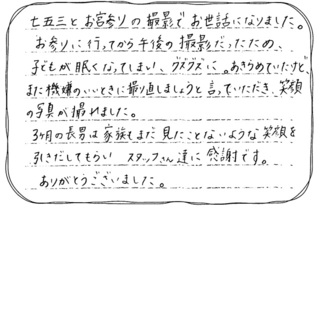 七五三とお宮参りの撮影でお世話になりました。
お参りに行ってから午後の撮影だったため、
子どもが眠くなってしまい、グズグズに。あきらめていたけど、
また機嫌のいいときに撮り直しましょうと言っていただき、笑顔
の写真が撮れました。
3ヶ月の長男は家族もまだ見たことないような笑顔を
引きだしてもらい スタッフさん達に感謝です。
ありがとうございました。